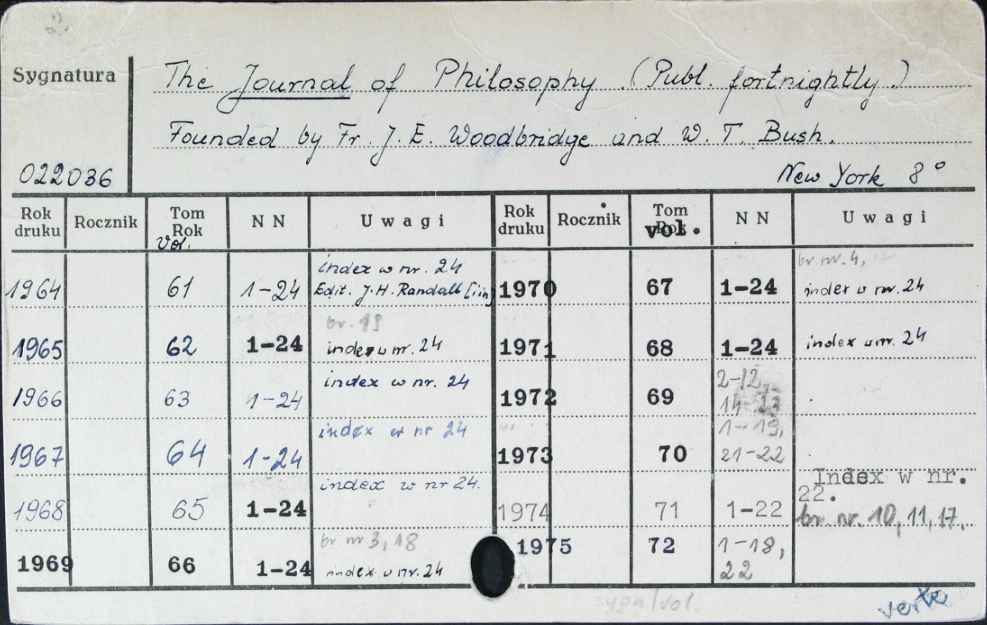 Sygnatura
The Journal of Philosophy. (Publ. fortnightly.)
Founded by Fr. J. E. Woodbridge and W. T. Bush.
022036
New York 8°
Rok druku Rocznik Tom Rok Vol. NN Uwagi
1964 61 1-24 index w nr. 24
Edit. J.H. Randall [in]
1965 62 1-24 br. 19
index w nr. 24
1966 63 1-24 index w nr. 24
1967 64 1-24 index w nr 24
1968 65 1-24 index w nr 24.
1969 66 1-24 br nr 3, 18
index w nr. 24
Rok druku Rocznik Tom vol. NN Uwagi
1970 67 1-24 br nr. 4,
index w nr. 24
1971 68 1-24 index w nr. 24
1972 69 2-12,
14-23
1973 70 1-19,
21-22
1974 71 1-22 Index w nr.
22.
br nr. 10, 11, 17,
1975 72 1-18,
22
verte